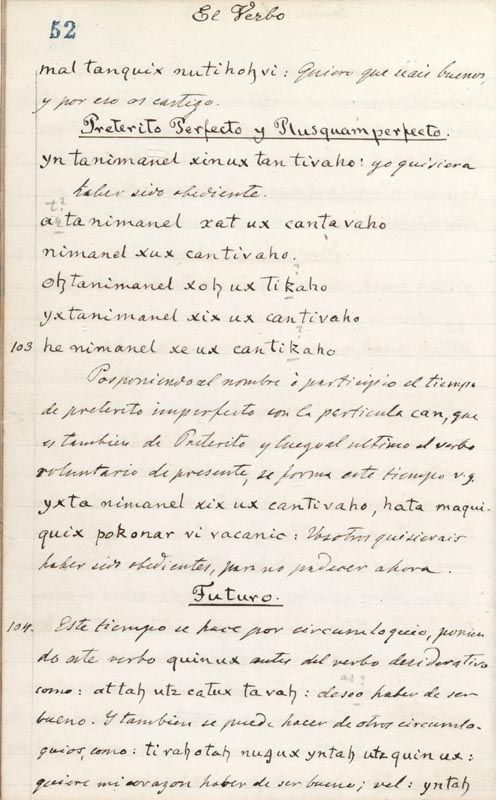 El Verbo
52
mal tanquix nutihoꜧvi: Quiero que seais buenos,
y por eso os castigo.
Preterito Perfecto y Plusquamperfecto.
yn tanimanel xinux tan tivaho: yo quisiera
haber sido obediente.
t?
atanimanel xat ux cantavaho
nimanel xux cantivaho.
oꜧtanimanel xoꜧ ux tikaho
?
yxtanimanel xix ux cantivaho
?
103 he nimanel xe ux cantikaho
Posponiendo al nombre ò participio el tiempo
de preterito imperfecto con la particula can, que
es tambien de Preterito y luego al ultimo el verbo
voluntario de presente, se forma este tiempo v.g.
yxta nimanel xix ux cantivaho, hata maqui-
quix pokonar vi vacanic: Vosotros quisierais
haber sido obedientes, para no padecer ahora.
Futuro.
104. Este tiempo se hace por circumloquio, ponien
do este verbo quinux antes del verbo desiderativo
as?
como: attaꜧ utz catux tavaꜧ: deseo haber de ser
bueno. Y tambien se puede hacer de otros circumlo-
quios, como: tirahotaꜧ nuqux yntaꜧ utz quinux:
quiere mi corazon haber de ser bueno; vel: yntaꜧ